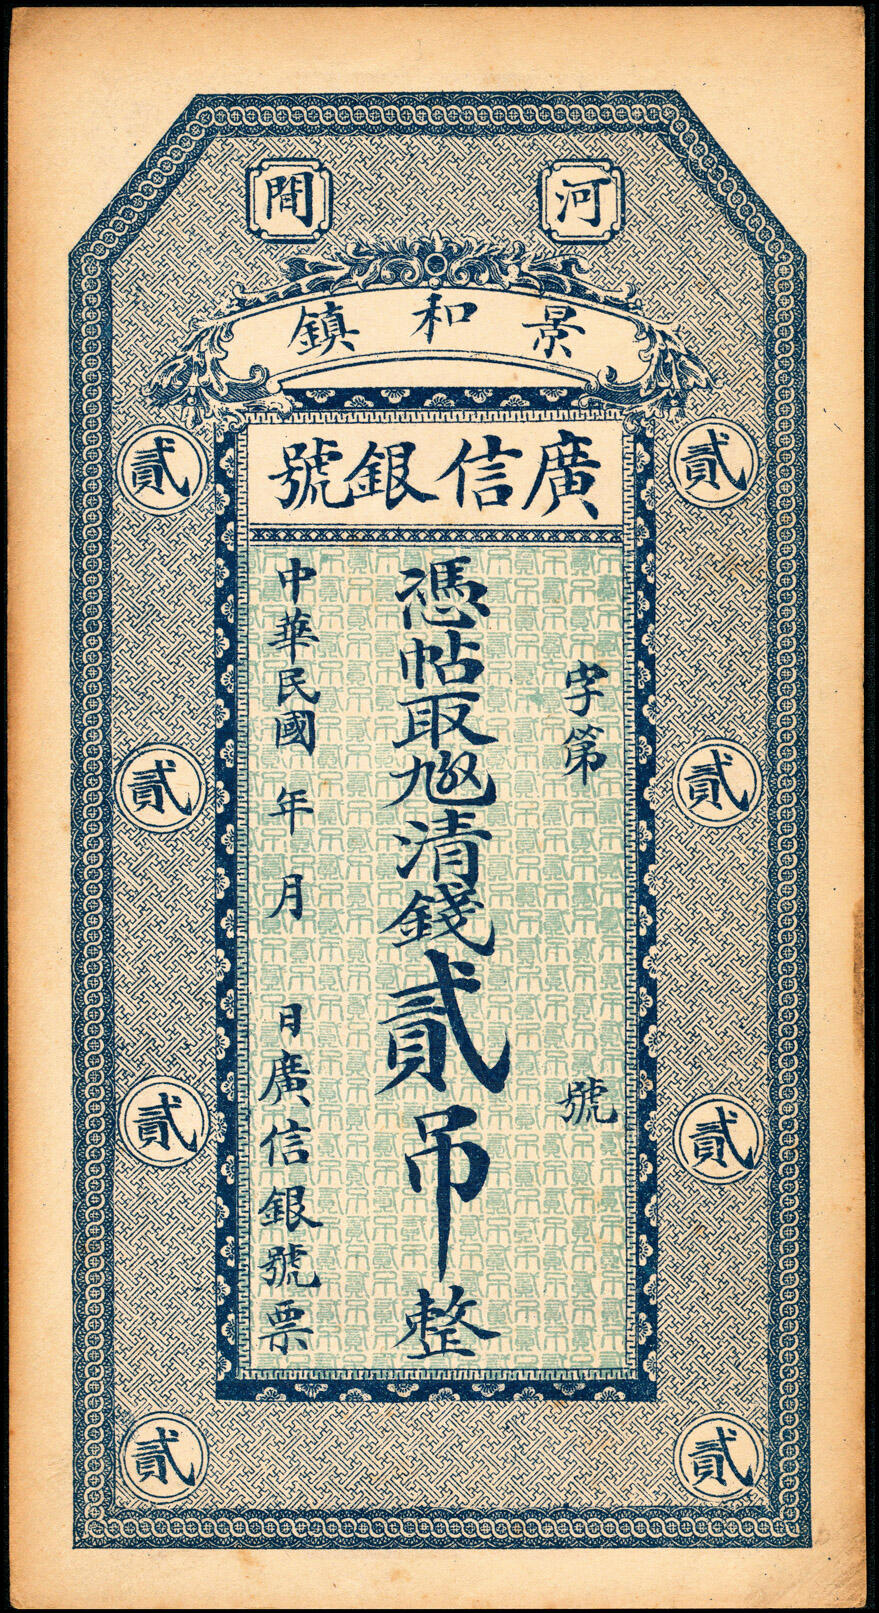 河間
景和鎮
廣信銀號
字第 號
憑帖取 清錢貳吊整
中華民國 年 月 日廣信銀號票
貳
貳
貳
貳
貳
貳
貳
貳